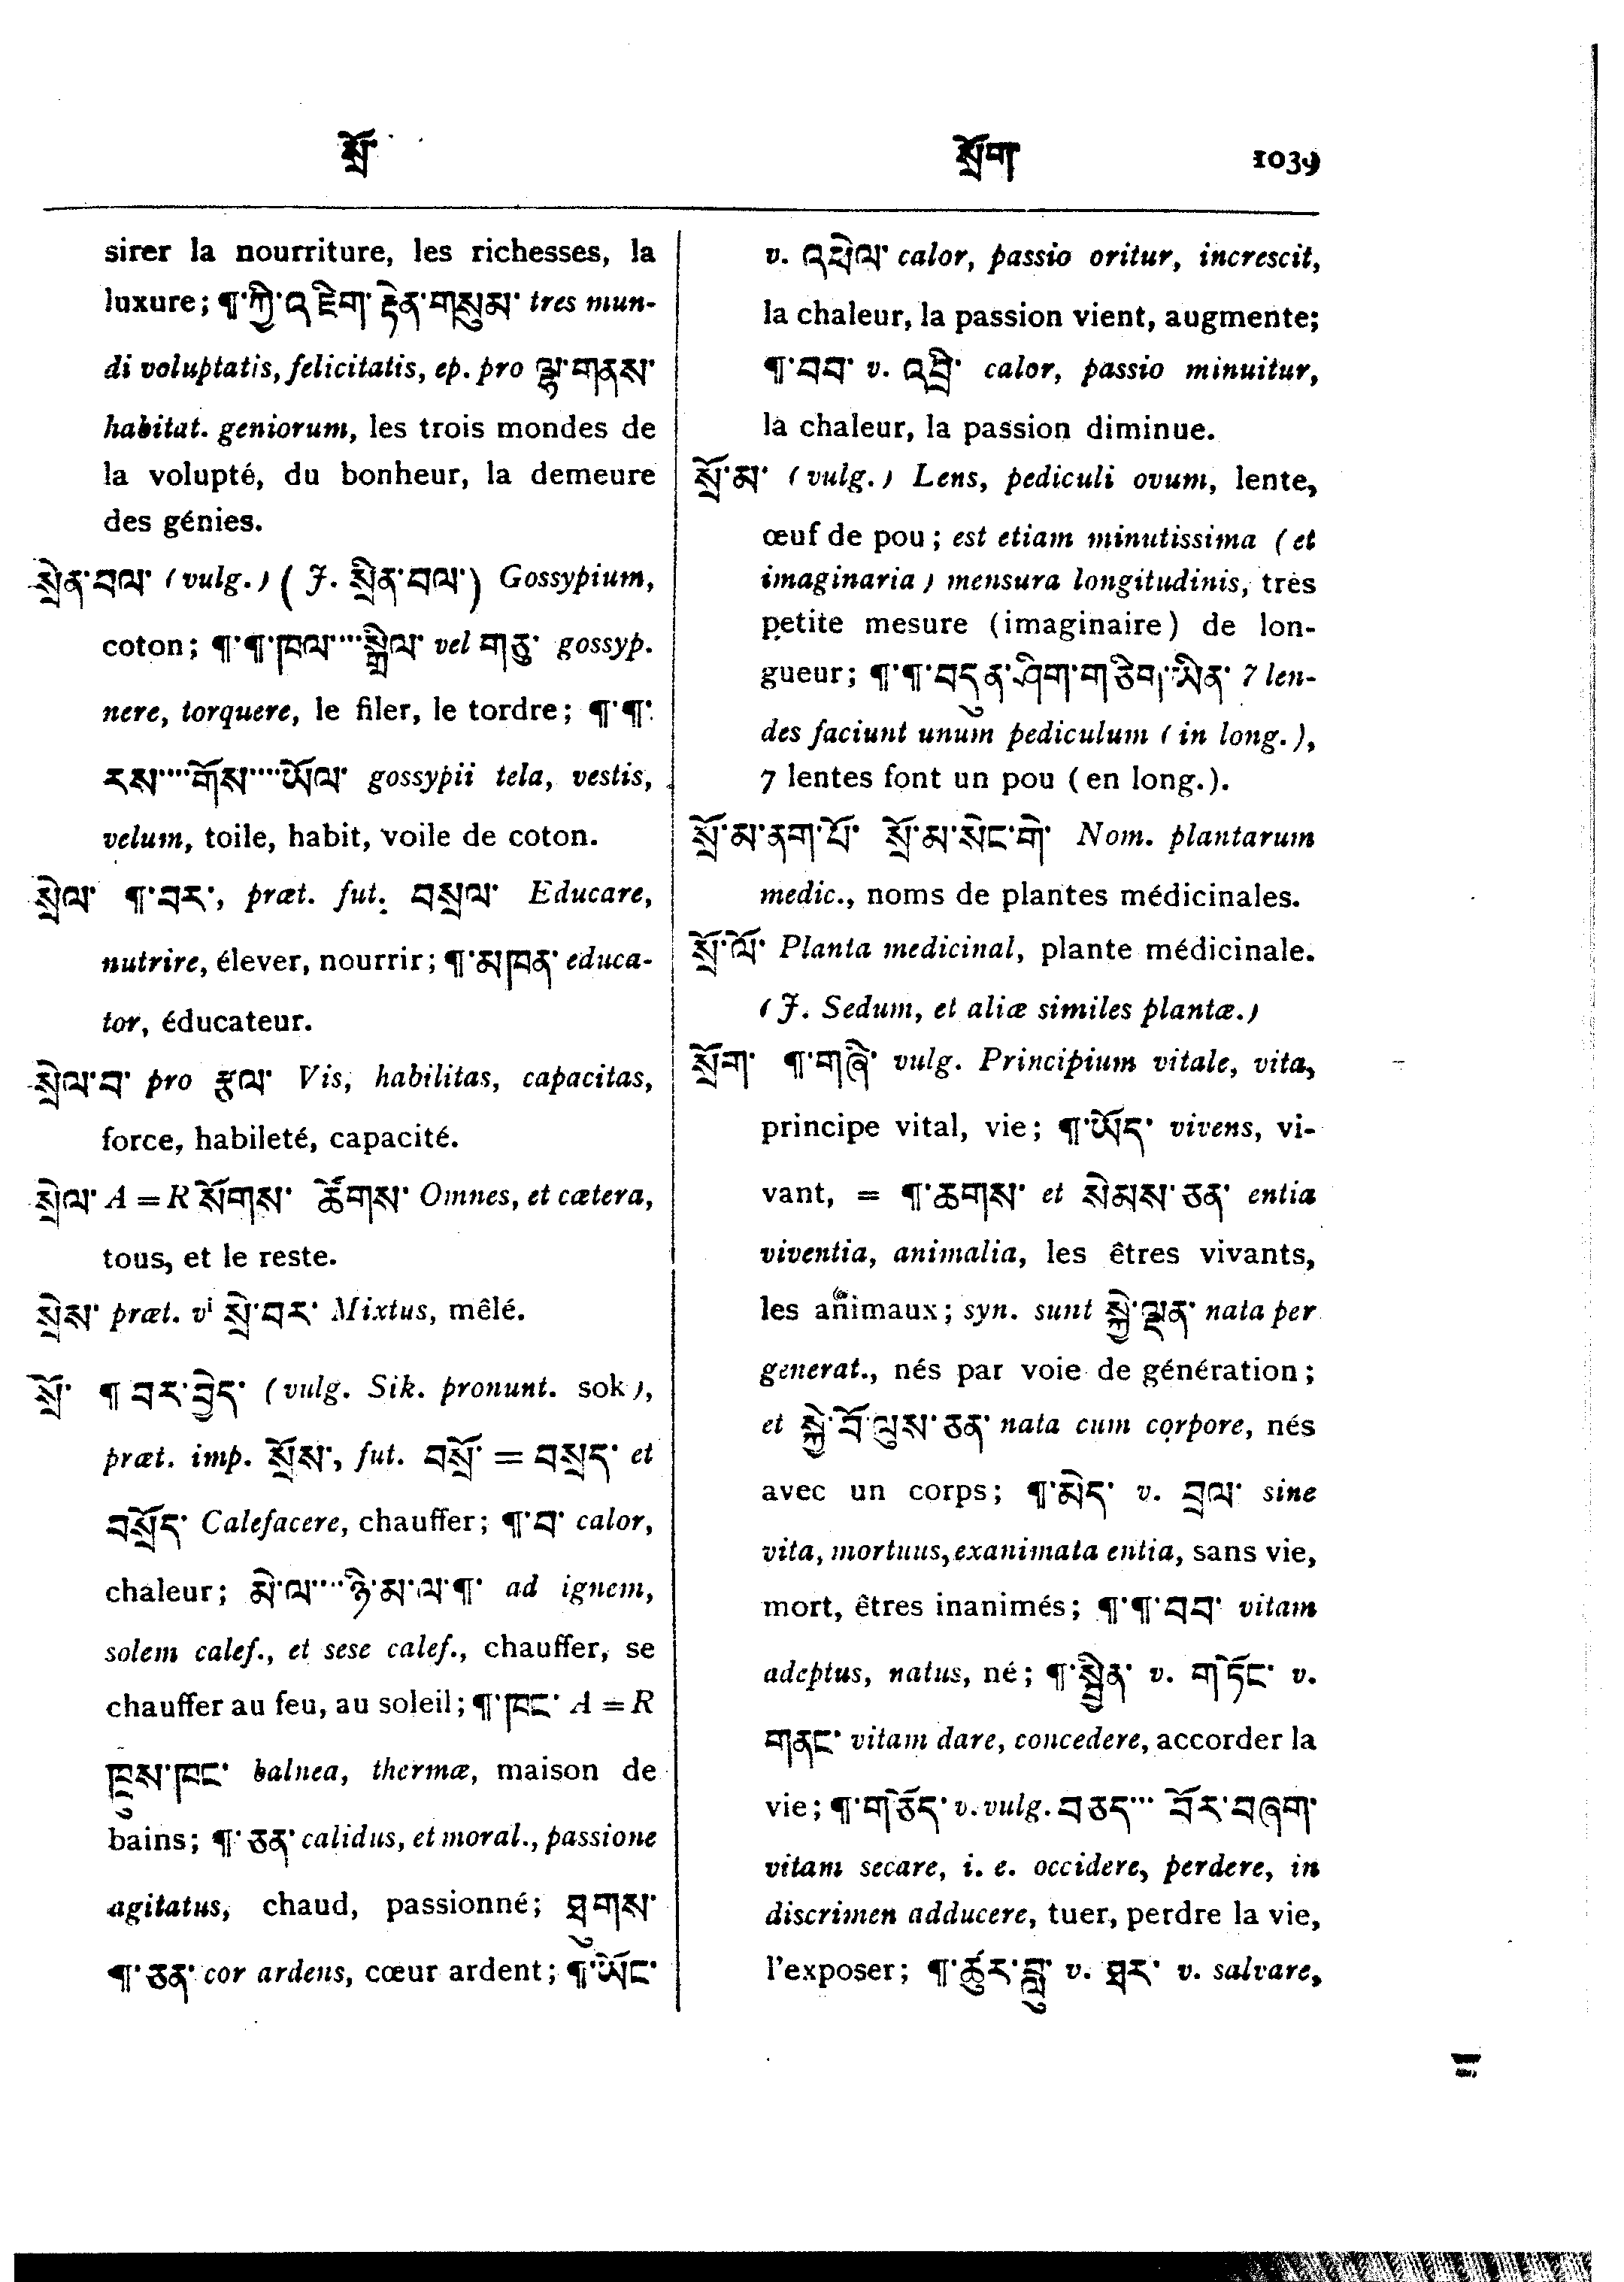 སྲོ་ སྲོག་ 1039
sirer la nourriture, les richesses, la
luxure; ¶་ཀྱི་འཇིག་རྟེན་གསུམ་ tres mun-
di voluptatis, felicitatis, ep. pro ལྷ་གནས་
habitat. geniorum, les trois mondes de
la volupté, du bonheur, la demeure
des génies.
སྲེན་བལ་ (vulg.) (J. སྲིན་བལ་) Gossypium,
coton; ¶་¶་ཁལ་····སྒྲིལ་ vel གཅུ་ gossyp.
nere, torquere, le filer, le tordre; ¶་¶་
རས་····གོས་····ཡོལ་ gossypii tela, vestis,
velum, toile, habit, voile de coton.
སྲེལ་ ¶་བར་, præt. fut. བསྲལ་ Educare,
nutrire, élever, nourrir; ¶་མཁན་ educa-
tor, éducateur.
སྲེལ་བ་ pro རྩལ་ Vis, habilitas, capacitas,
force, habileté, capacité.
སྲེལ་ A = R སོགས་ ཚོགས་ Omnes, et cætera,
tous, et le reste.
སྲེས་ præt. vi སྲེ་བར་ Mixtus, mêlé.
སྲོ་ ¶ བར་བྱེད་ (vulg. Sik. pronunt. sok),
præt. imp. སྲོས་, fut. བསྲོ་ = བསྲད་ et
བསྲོད་ Calefacere, chauffer; ¶་བ་ calor,
chaleur; མེ་ལ་····ཉི་མ་ལ་¶་ ad ignem,
solem calef., et sese calef., chauffer, se
chauffer au feu, au soleil; ¶་ཁང་ A = R
ཁྲུས་ཁང་ balnea, thermæ, maison de
bains; ¶་ཅན་ calidus, et moral., passione
agitatus, chaud, passionné; ཐུགས་
¶་ཅན་ cor ardens, cœur ardent; ¶་ཡོང་
v. འཕེལ་ calor, passio oritur, increscit,
la chaleur, la passion vient, augmente;
¶་བབ་ v. འབྲི་ calor, passio minuitur,
la chaleur, la passion diminue.
སྲོ་མ་ (vulg.) Lens, pediculi ovum, lente,
œuf de pou; est etiam minutissima (et
imaginaria) mensura longitudinis, très
petite mesure (imaginaire) de lon-
gueur; ¶་¶་བདུན་ཤིག་གཅིག་ཡིན་ 7 len-
des faciunt unum pediculum (in long.),
7 lentes font un pou (en long.).
སྲོ་མ་ནག་པོ་ སྲོ་མ་སེང་གེ་ Nom. plantarum
medic., noms de plantes médicinales.
སྲོ་ལོ་ Planta medicinal, plante médicinale.
(J. Sedum, et aliæ similes plantæ.)
སྲོག་ ¶་གཞི་ vulg. Principium vitale, vita,
principe vital, vie; ¶་ཡོད་ vivens, vi-
vant, = ¶་ཆགས་ et སེམས་ཅན་ entia
viventia, animalia, les êtres vivants,
les animaux; syn. sunt སྐྱེ་ལྡན་ nata per
generat., nés par voie de génération;
et སྐྱེ་བོ་ལུས་ཅན་ nata cum corpore, nés
avec un corps; ¶་མེད་ v. བྲལ་ sine
vita, mortuus, exanimata entia, sans vie,
mort, êtres inanimés; ¶་¶་བབ་ vitam
adeptus, natus, né; ¶་སྦྱིན་ v. གཏོང་ v.
གནང་ vitam dare, concedere, accorder la
vie; ¶་གཅོད་ v. vulg. བཅད་··· བོར་བཞག་
vitam secare, i. e. occidere, perdere, in
discrimen adducere, tuer, perdre la vie,
l'exposer; ¶་ཚུར་བླུ་ v. ཐར་ v. salvare,